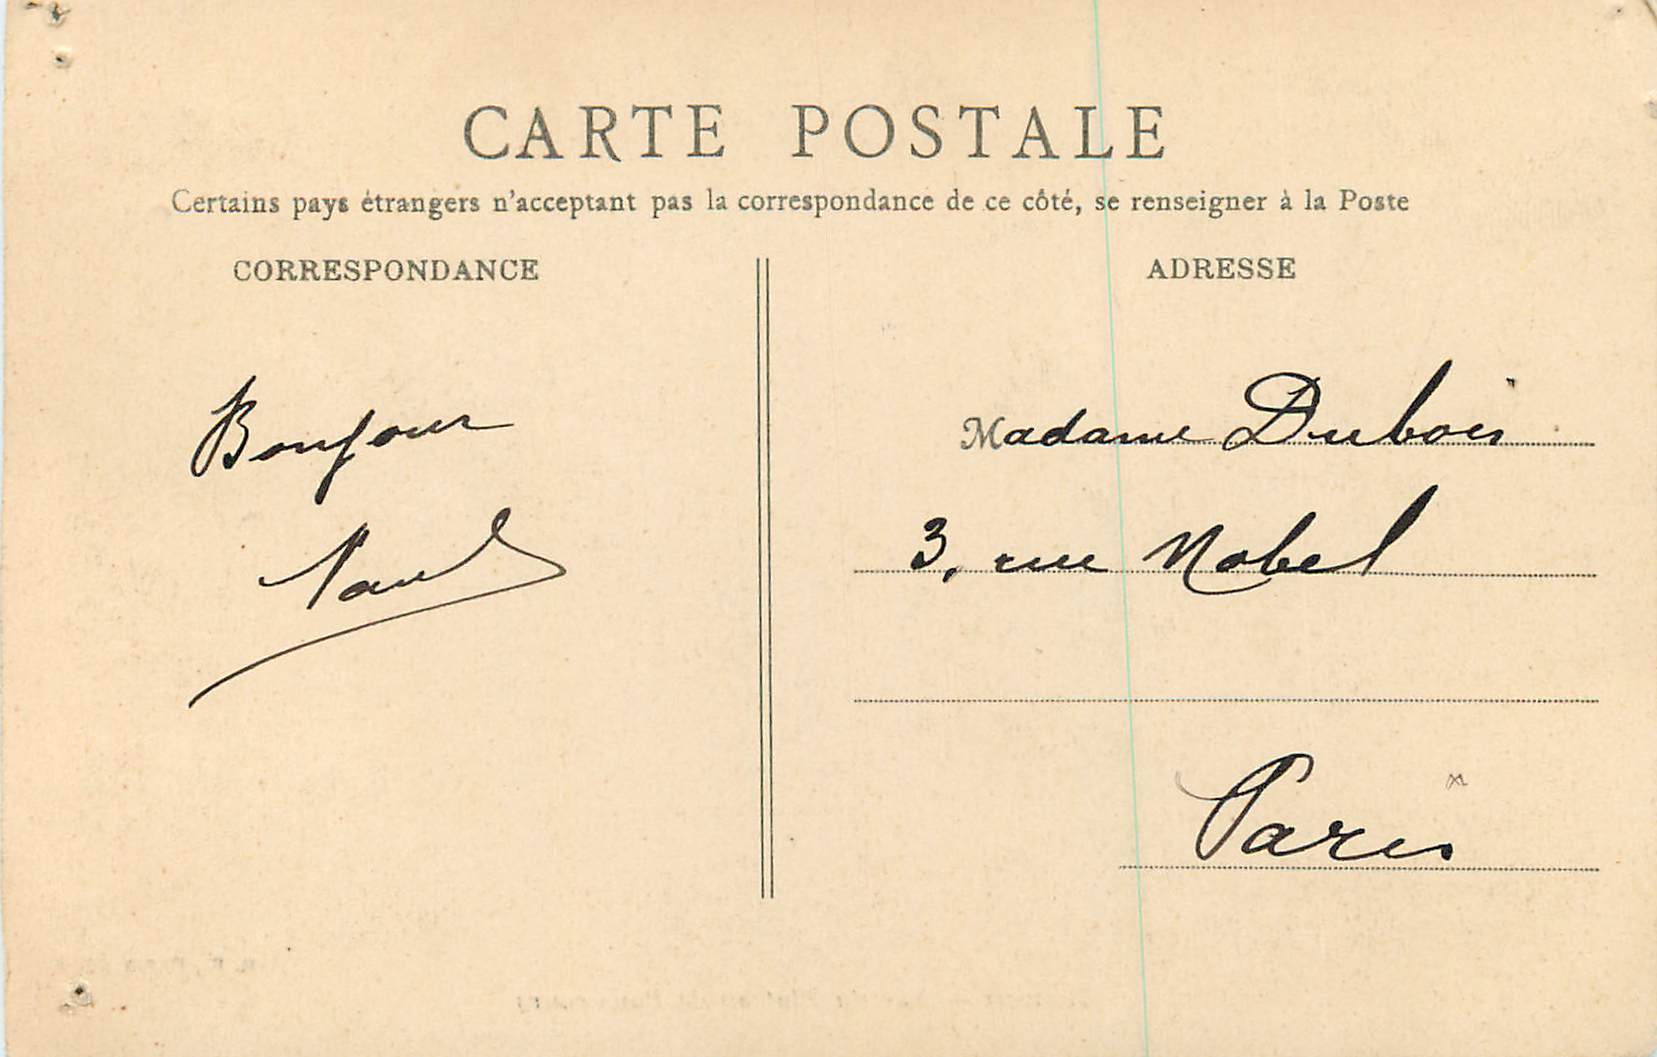 CARTE POSTALE
Certains pays étrangers n'acceptant pas la correspondance de ce côté, se renseigner à la Poste
CORRESPONDANCE
Bonjour
Paul
ADRESSE
Madame Dubois
3, rue Nobel
Paris